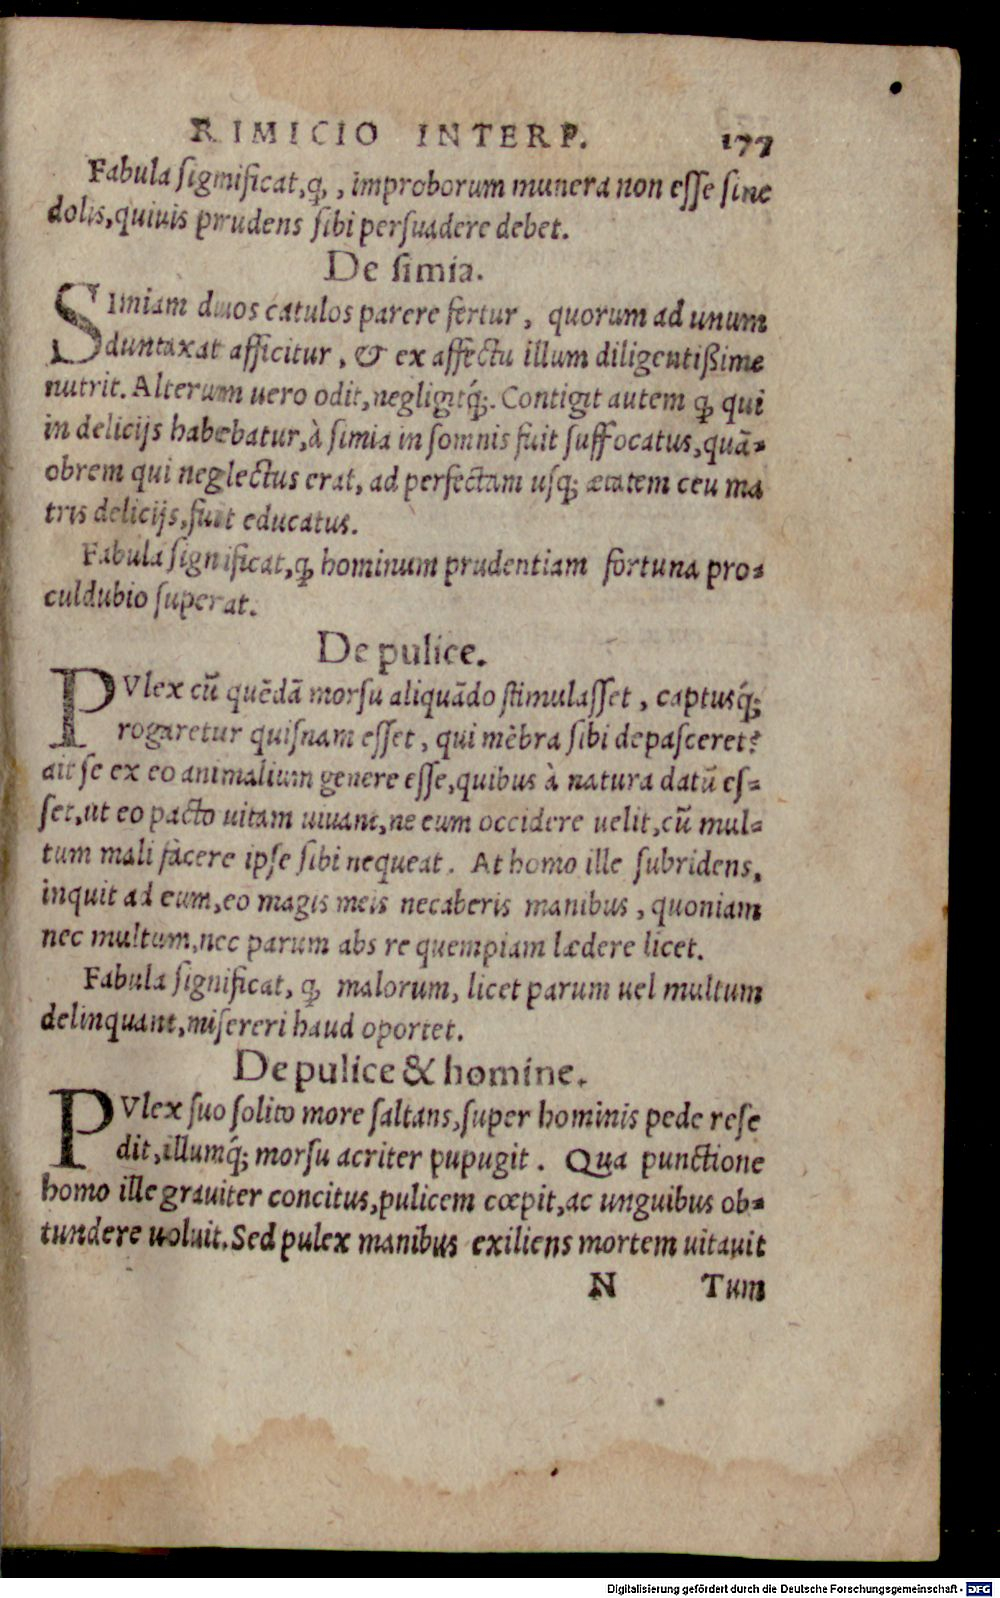 RIMICIO INTERP. 177
Fabula significat, ꝙ, improborum munera non esse sine
dolis, quiuis prudens sibi persuadere debet.
De simia.
SImiam duos catulos parere fertur, quorum ad unum
duntaxat afficitur, & ex affectu illum diligentißime
nutrit. Alterum uero odit, negligitq́;. Contigit autem ꝙ qui
in delicijs habebatur, à simia in somnis fuit suffocatus, quā-
obrem qui neglectus erat, ad perfectam usq; ætatem ceu ma
tris delicijs, fuit educatus.
Fabula significat, ꝙ hominum prudentiam fortuna pro-
culdubio superat.
De pulice.
PVlex cū quēdā morsu aliquādo stimulasset, captusq́;
rogaretur quisnam esset, qui mēbra sibi depasceret?
ait se ex eo animalium genere esse, quibus à natura datū es-
set, ut eo pacto uitam uiuant, ne eum occidere uelit, cū mul-
tum mali facere ipse sibi nequeat. At homo ille subridens,
inquit ad eum, eo magis meis necaberis manibus, quoniam
nec multum, nec parum abs re quempiam lædere licet.
Fabula significat, ꝙ malorum, licet parum uel multum
delinquant, misereri haud oportet.
De pulice & homine.
PVlex suo solito more saltans, super hominis pede rese
dit, illumq́; morsu acriter pupugit. Qua punctione
homo ille grauiter concitus, pulicem cœpit, ac unguibus ob-
tundere uoluit. Sed pulex manibus exiliens mortem uitauit
N Tum
Digitalisierung gefördert durch die Deutsche Forschungsgemeinschaft - DFG